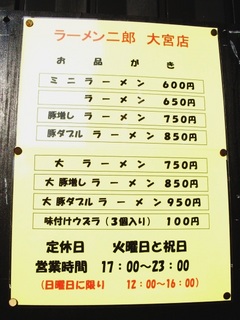 ラーメン二郎 大宮店
お品がき
ミニラーメン 600円
ラーメン 650円
豚増しラーメン 750円
豚ダブルラーメン 850円
大ラーメン 750円
大豚増しラーメン 850円
大豚ダブルラーメン 950円
味付けウズラ(3個入り) 100円
定休日 火曜日と祝日
営業時間 17:00〜23:00
(日曜日に限り 12:00〜16:00)